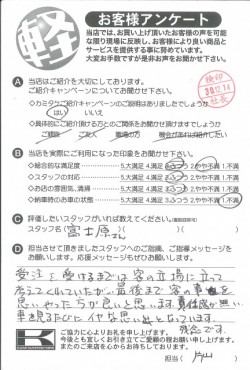 軽
お客様アンケート
当店では、お買い上げ頂いたお客様の声を可能
な限り現場に反映し、お客様により良い商品と
サービスを提供する事に努めています。
大変お手数ですが是非お声をお聞かせ下さい。
A 当店はご紹介を大切にしております。
ご紹介キャンペーンについてお聞かせ下さい。
検印
30.12.14
社長
◇カミタコご紹介キャンペーンのご説明はありましたでしょうか
はい いいえ
◇具体的にご紹介頂ける方とのご関係をお聞かせ頂けますでしょうか
ご親戚 ご友人 職場の方 機会があれば紹介したい
B 当店を実際にご利用になった印象をお聞かせ下さい。
◇総合的な満足度 5.大満足 4.満足 3.ふつう 2.やや不満 1.不満
◇スタッフの対応 5.大満足 4.満足 3.ふつう 2.やや不満 1.不満
◇お店の雰囲気、清掃 5.大満足 4.満足 3.ふつう 2.やや不満 1.不満
◇納車時のお車の状態 5.大満足 4.満足 3.ふつう 2.やや不満 1.不満
C 評価したいスタッフがいれば教えてください。
スタッフ名( 富士原さん )
D 担当させて頂きましたスタッフへのご指摘、ご指導メッセージを
お願いします。応援メッセージもぜひお願いします。
受注を受けるまでは客の立場に立って
考えてくれていたが、最後まで客の事を
思いやった方が良いと思います。責任感が無い
車を見るたびに イヤな思い出となっています。
残念です。
ご協力に心よりお礼を申し上げます。
今後とも宜しくお引き立てご愛顧の程お願い申し上げます。
またのご来店を心からお待ちしております。
担当( 片山 )